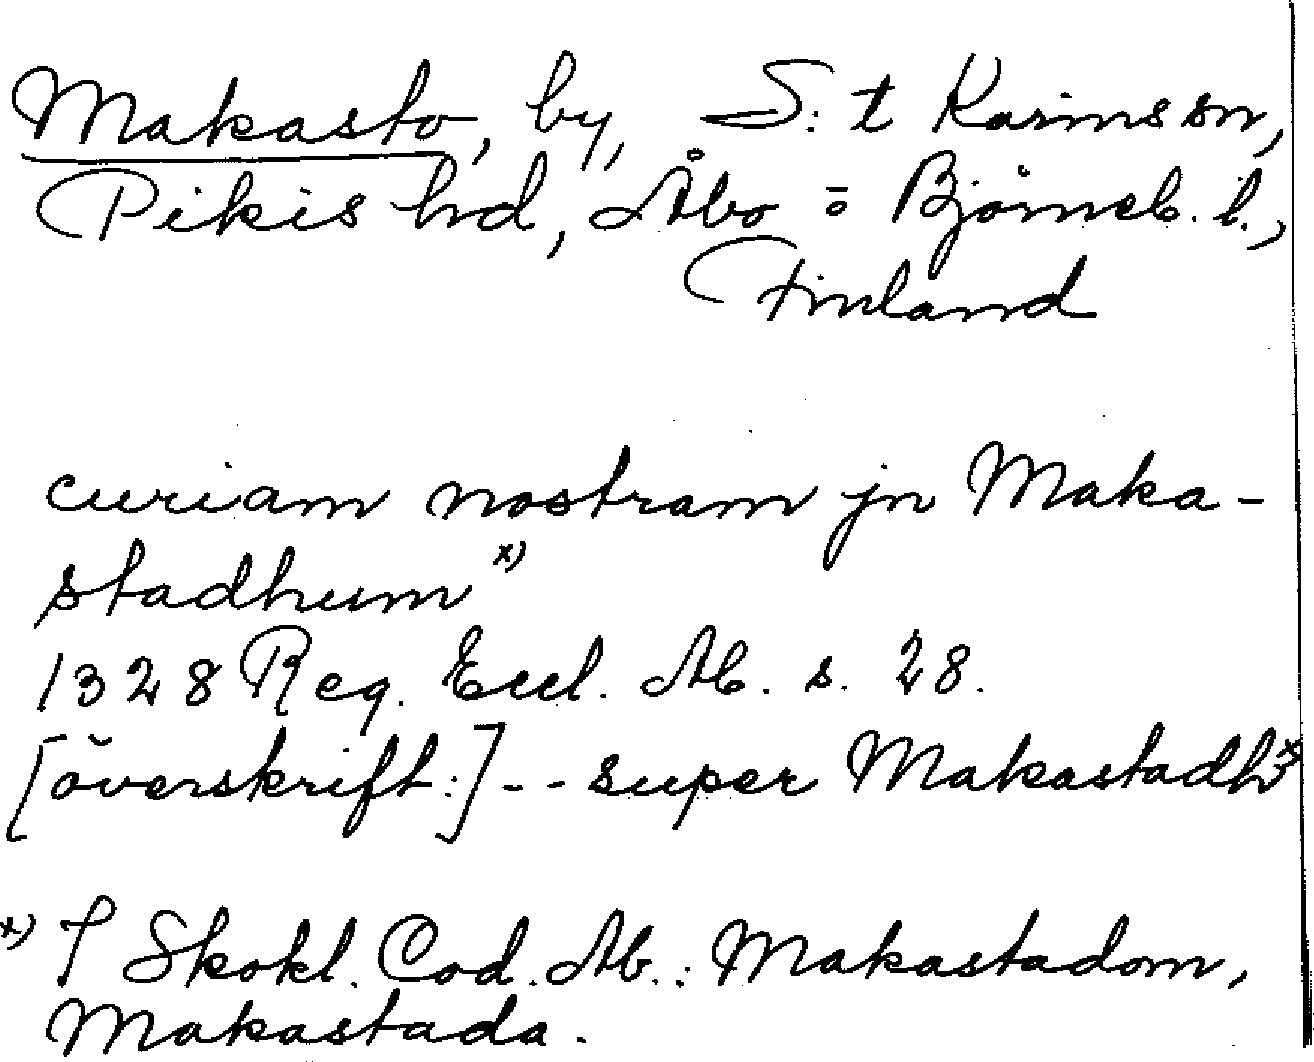 Makasto, by, S:t Karins sn,
Pikis hd, Åbo = Björneb. l.,
Finland
curiam nostram jn Maka-
stadhum x)
1328 Reg. Eccl. Ab. s. 28.
[överskrift:] -- super Makastadh x)
x) I Skokl. Cod. Ab.: Makastadom,
Makastada.